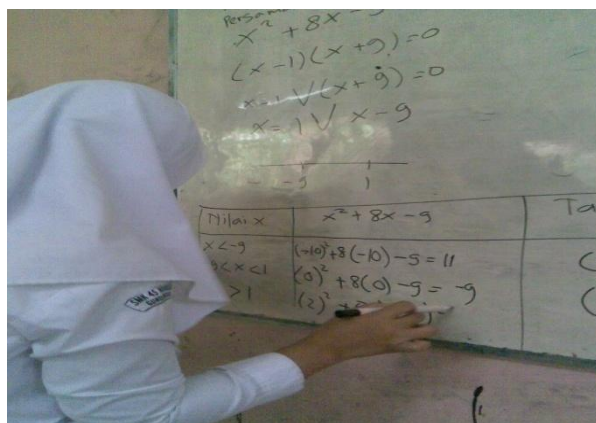 Persama
x² + 8x - 9
(x-1)(x+9)=0
x=1 ∨ (x+9)=0
x=1 ∨ x-9
-9 1
Nilai x x² + 8x - 9 Ta
x<-9 (-10)²+8(-10)-9=11
9<x<1 (0)² +8(0)-9= -9
>1 (2)²
SMK